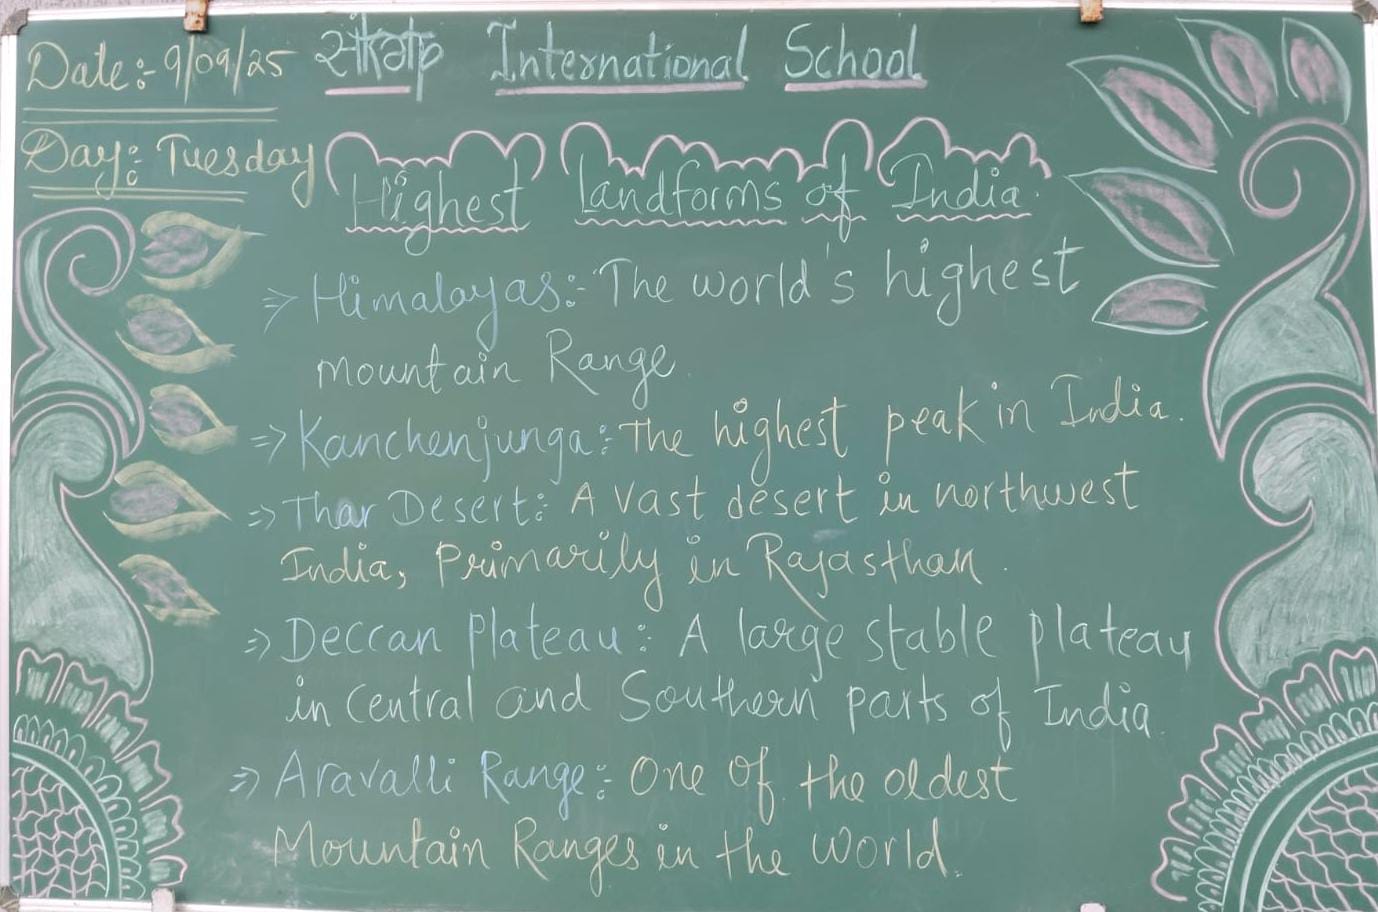 Date:- 9/09/25
International School
Day: Tuesday
Highest Landforms of India
⇒ Himalayas:- The world's highest
mountain Range.
⇒ Kanchenjunga: The highest peak in India.
⇒ Thar Desert: A vast desert in northwest
India, Primarily in Rajasthan.
⇒ Deccan Plateau: A large stable plateau
in Central and Southern parts of India.
⇒ Aravalli Range:- One of the oldest
Mountain Ranges in the World.